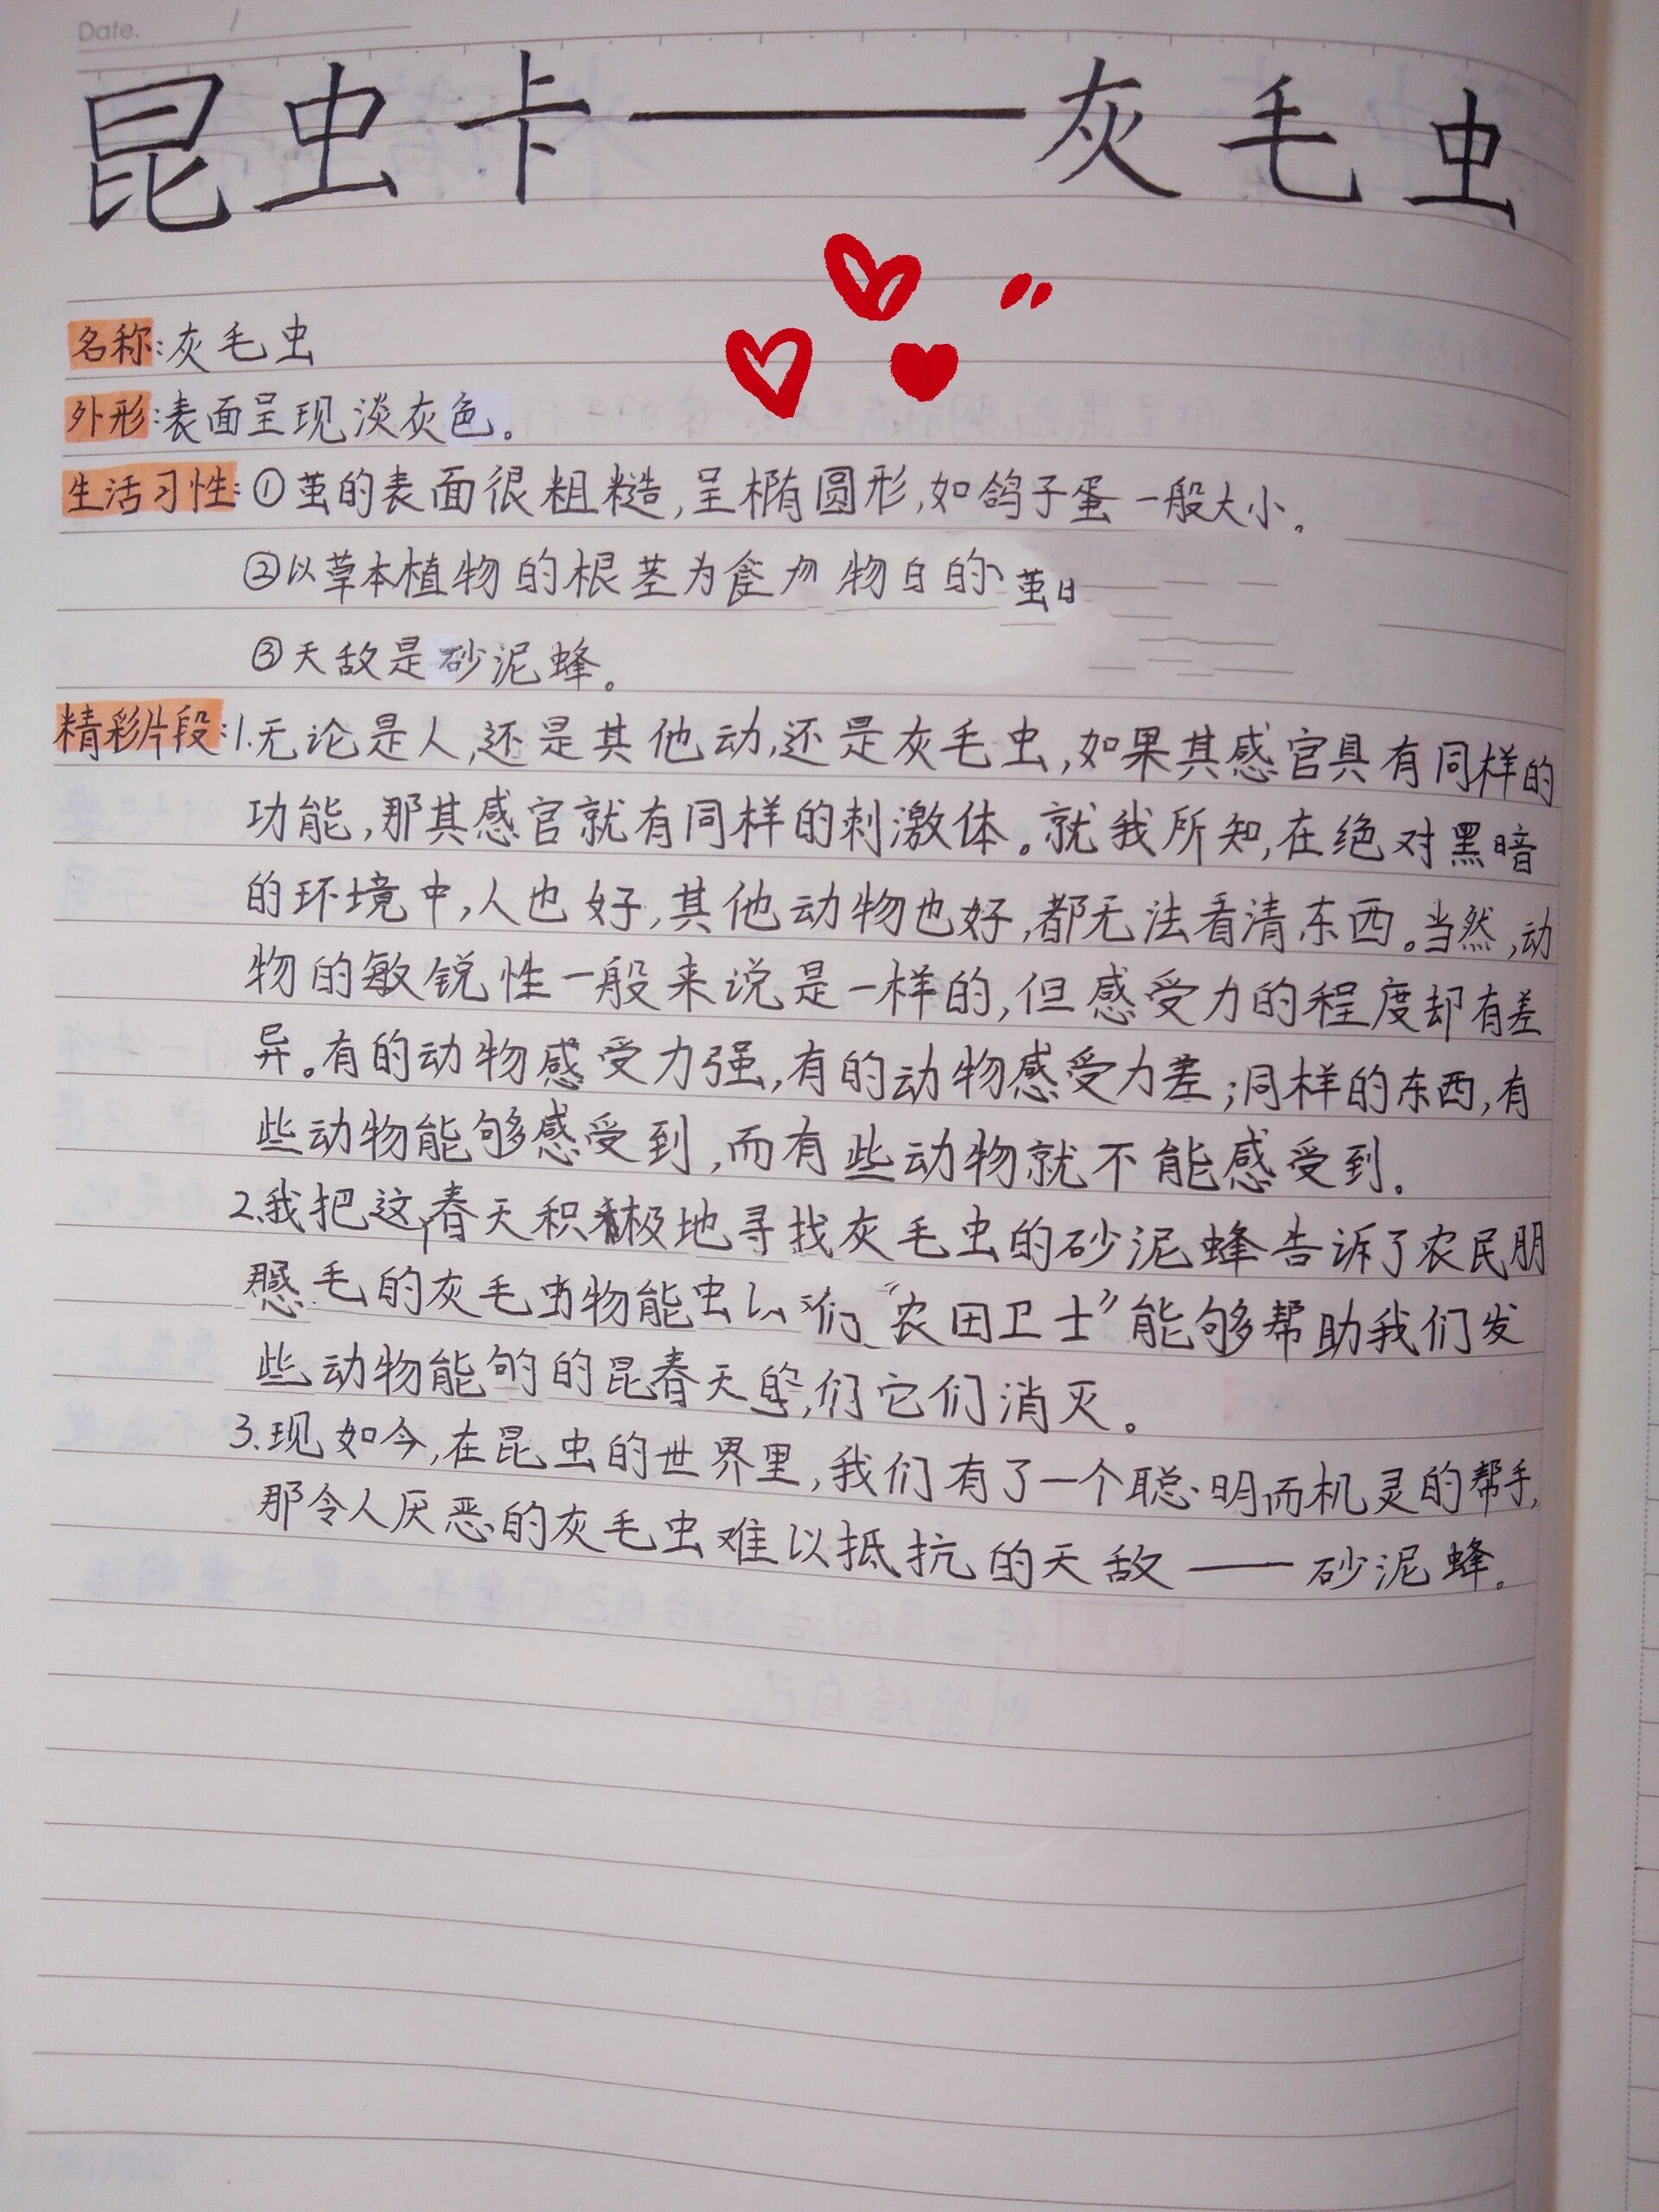 Date.
昆虫卡——灰毛虫
名称:灰毛虫
外形:表面呈现淡灰色。
生活习性:①茧的表面很粗糙,呈椭圆形,如鸽子蛋一般大小。
②以草本植物的根茎为 物 的 茧
③天敌是砂泥蜂。
精彩片段:1.无论是人,还是其他动,还是灰毛虫,如果其感官具有同样的
功能,那其感官就有同样的刺激体。就我所知,在绝对黑暗
的环境中,人也好,其他动物也好,都无法看清东西。当然,动
物的敏锐性一般来说是一样的,但感受力的程度却有差
异。有的动物感受力强,有的动物感受力差;同样的东西,有
些动物能够感受到,而有些动物就不能感受到。
2.我把这春天积极地寻找灰毛虫的砂泥蜂告诉了农民朋
毛的灰毛 物能虫 们“农田卫士”能够帮助我们发
些动物能 的昆春天 ,们它们消灭。
3.现如今,在昆虫的世界里,我们有了一个聪明而机灵的帮手,
那令人厌恶的灰毛虫难以抵抗的天敌——砂泥蜂。